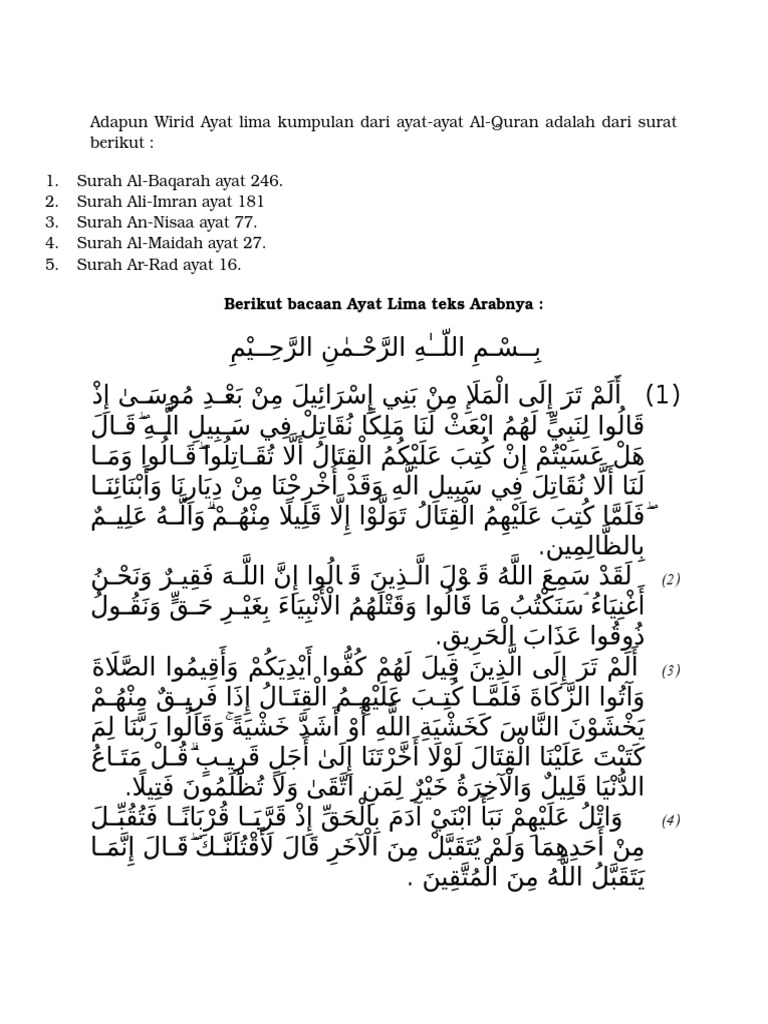 Adapun Wirid Ayat lima kumpulan dari ayat-ayat Al-Quran adalah dari surat
berikut :
1. Surah Al-Baqarah ayat 246.
2. Surah Ali-Imran ayat 181
3. Surah An-Nisaa ayat 77.
4. Surah Al-Maidah ayat 27.
5. Surah Ar-Rad ayat 16.
Berikut bacaan Ayat Lima teks Arabnya :
بِــسْــمِ اللّــٰـهِ الرَّحْـمٰنِ الرَّحِــيْمِ
(1) أَلَمْ تَرَ إِلَى الْمَلَإِ مِنْ بَنِي إِسْرَائِيلَ مِنْ بَعْـدِ مُوسَـىٰ إِذْ
قَالُوا لِنَبِيٍّ لَهُمُ ابْعَثْ لَنَا مَلِكًا نُقَاتِلْ فِي سَـبِيلِ الَّـهِ ۖ قَـالَ
هَلْ عَسَيْتُمْ إِنْ كُتِبَ عَلَيْكُمُ الْقِتَالُ أَلَّا تُقَـاتِلُوا ۖ قَـالُوا وَمَـا
لَنَا أَلَّا نُقَاتِلَ فِي سَبِيلِ الَّهِ وَقَدْ أُخْرِجْنَا مِنْ دِيَارِنَا وَأَبْنَائِنَـا
ۖ فَلَمَّا كُتِبَ عَلَيْهِمُ الْقِتَالُ تَوَلَّوْا إِلَّا قَلِيلًا مِنْهُـمْ ۗ وَالَّـهُ عَلِيـمٌ
بِالظَّالِمِين.
(2) لَقَدْ سَمِعَ اللَّهُ قَوْلَ الَّـذِينَ قَالُوا إِنَّ اللَّـهَ فَقِيـرٌ وَنَحْـنُ
أَغْنِيَاءُ ۘ سَنَكْتُبُ مَا قَالُوا وَقَتْلَهُمُ الْأَنْبِيَاءَ بِغَيْـرِ حَـقٍّ وَنَقُـولُ
ذُوقُوا عَذَابَ الْحَرِيقِ.
(3) أَلَمْ تَرَ إِلَى الَّذِينَ قِيلَ لَهُمْ كُفُّوا أَيْدِيَكُمْ وَأَقِيمُوا الصَّلَاةَ
وَآتُوا الزَّكَاةَ فَلَمَّـا كُتِـبَ عَلَيْهِـمُ الْقِتَـالُ إِذَا فَرِيـقٌ مِنْهُـمْ
يَخْشَوْنَ النَّاسَ كَخَشْيَةِ اللَّهِ أَوْ أَشَدَّ خَشْيَةً ۚ وَقَالُوا رَبَّنَا لِمَ
كَتَبْتَ عَلَيْنَا الْقِتَالَ لَوْلَا أَخَّرْتَنَا إِلَىٰ أَجَلٍ قَرِيـبٍ ۗ قُـلْ مَتَـاعُ
الدُّنْيَا قَلِيلٌ وَالْآخِرَةُ خَيْرٌ لِمَنِ اتَّقَىٰ وَلَا تُظْلَمُونَ فَتِيلًا.
(4) وَاتْلُ عَلَيْهِمْ نَبَأَ ابْنَيْ آدَمَ بِالْحَقِّ إِذْ قَرَّبَـا قُرْبَانًـا فَتُقُبِّـلَ
مِنْ أَحَدِهِمَا وَلَمْ يُتَقَبَّلْ مِنَ الْآخَرِ قَالَ لَأَقْتُلَنَّـكَ ۖ قَـالَ إِنَّمَـا
يَتَقَبَّلُ اللَّهُ مِنَ الْمُتَّقِينَ .